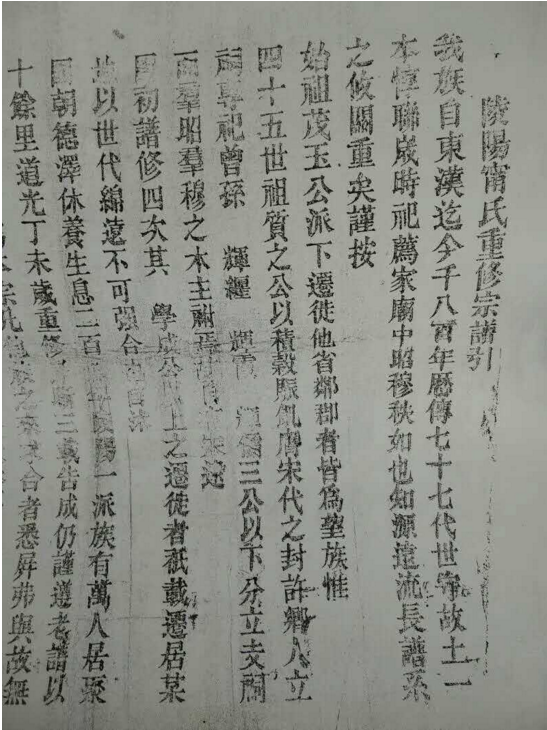 陵陽甯氏重修宗譜引
我族自東漢迄今千八百年歷傳七十七代世守故土一
本惇聯歲時祀薦家廟中昭穆秩如也知源遠流長譜系
之攸關重矣謹按
始祖茂玉公派下遷徙他省鄰郡者皆為望族惟
四十五世祖質之公以積穀賑飢膺宋代之封許鄉人立
祠專祀曾孫 輝 輝 三公以下分立支祠
而羣昭羣穆之木主祔焉 遠
國初譜修四次其 學成公 上之遷徙者祇載遷居某
以世代綿遠不可強合
國朝德澤休養生息二百 陽一派族有萬人居聚
十餘里道光丁未歲重修 三載告成仍謹遵老譜以
本宗 之 合者悉屏弗與故無